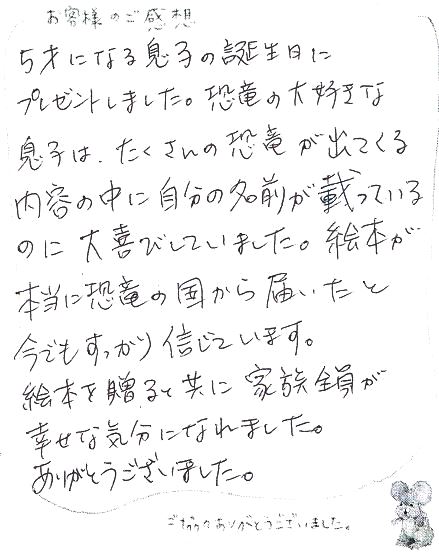 お客様のご感想
5才になる息子の誕生日に
プレゼントしました。恐竜の大好きな
息子は、たくさんの恐竜が出てくる
内容の中に自分の名前が載っている
のに大喜びしていました。絵本が
本当に恐竜の国から届いたと
今でもすっかり信じています。
絵本を贈ると共に家族全員が
幸せな気分になれました。
ありがとうございました。
ご協力ありがとうございました。